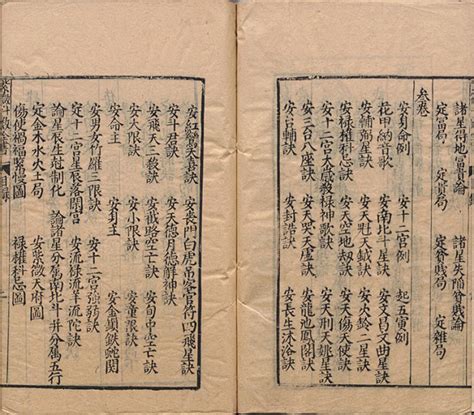 諸星得地富貴論　諸星失陷貧賤論
定富局　定貴局　定貧賤局　定雜局
叁卷
安身命例　安十二宮例　起五寅例
花甲納音歌　安南北斗星訣　安文昌文曲星訣
安輔弼星訣　安天魁天鉞訣　安火鈴二星訣
安祿權科忌訣　安天空地劫訣　安天傷天使訣
安十二宮太歲殺祿神歌訣　安天刑天姚星訣
安三台八座訣　安天哭天虛訣　安龍池鳳閣訣
安台輔訣　安封誥訣　安長生沐浴訣
安紅鸞天喜訣　安喪門白虎吊客官符四飛星訣
安斗君訣　安天德月德解神訣
安飛天三殺訣　安截路空亡訣　安旬中空亡訣
安男女竹羅三限訣　安小限訣　安童限訣
安命主　安身主
安十二宮強弱訣
定十二宮星辰落閑宮　安流祿流羊流陀訣　安金鎖鐵蛇關
論星辰生剋制化　論諸星分屬南北斗并分屬五行
定金木水火土局　安紫微天府圖
傷使禍福緊慢圖　祿權科忌圖